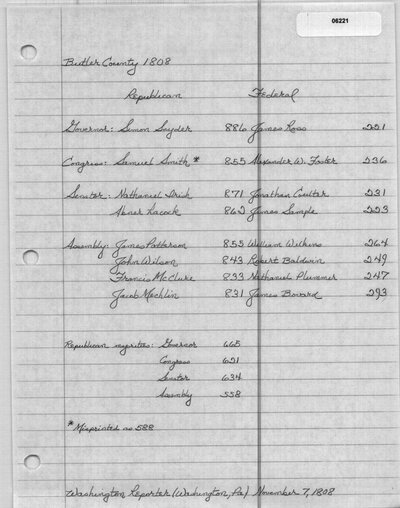 06221
Butler County 1808
Republican Federal
Governor: Simon Snyder 886 James Ross 221
Congress: Samuel Smith* 855 Alexander W. Foster 236
Senator: Nathaniel Irish 871 Jonathan Coulter 231
Abner Lacock 862 James Sample 223
Assembly: James Patterson 855 William Wilkins 264
John Wilson 843 Robert Baldwin 249
Francis McClure 833 Nathaniel Plummer 247
Jacob Mechlin 831 James Bovard 293
Republican majorities: Governor 665
Congress 621
Senator 634
Assembly 558
*Misprinted as 588
Washington Reporter (Washington, Pa) November 7, 1808